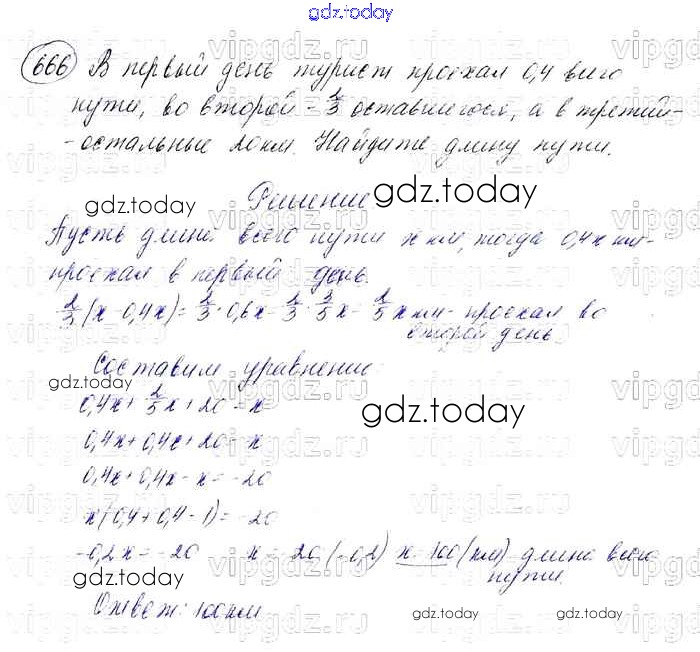 gdz.today
666 В первый день турист проехал 0,4 всего
пути, во второй - 2/3 оставшегося, а в третий-
-остальные 20км. Найдите длину пути.
Решение
gdz.today
gdz.today
Пусть длина всего пути x км, тогда 0,4x км-
проехал в первый день.
2/3(x-0,4x)=2/3·0,6x=2/3·3/5x=2/5x км- проехал во
второй день
Составим уравнение:
gdz.today
0,4x+2/5x+20=x
gdz.today
0,4x+0,4x+20=x
0,4x+0,4x-x=-20
x(0,4+0,4-1)=-20
-0,2x=-20 x=-20:(-0,2) x=100(км)-длина всего
пути.
gdz.today
Ответ: 100км
gdz.today
gdz.today